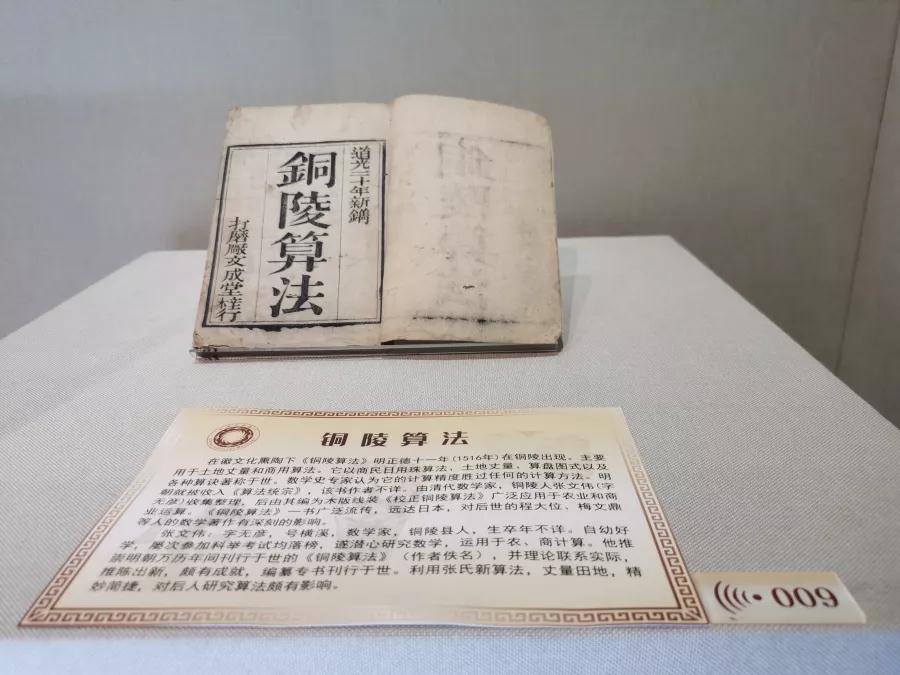 道光二十年新鐫
銅陵算法
打磨厰文成堂梓行
铜陵算法
在徽文化熏陶下《铜陵算法》明正德十一年(1516年)在铜陵出现。主要
用于土地丈量和商用算法。它以商民日用珠算法、土地丈量、算盘图式以及
各种算诀著称于世。数学史专家认为它的计算精度胜过任何的计算方法。明
朝就被收入《算法统宗》，该书作者不详。由清代数学家，铜陵人张文伟(字
无彦)收集整理，后由其编为木版线装《校正铜陵算法》广泛应用于农业和商
业运算。《铜陵算法》一书广泛流传，远达日本，对后世的程大位、梅文鼎
等人的数学著作有深刻的影响。
张文伟：字无彦，号横溪，数学家，铜陵县人，生卒年不详。自幼好
学，屡次参加科举考试均落榜，遂潜心研究数学，运用于农、商计算。他推
崇明朝万历年间刊行于世的《铜陵算法》（作者佚名），并理论联系实际，
推陈出新，颇有成就，编纂专书刊行于世。利用张氏新算法，丈量田地，精
妙简捷，对后人研究算法颇有影响。
009